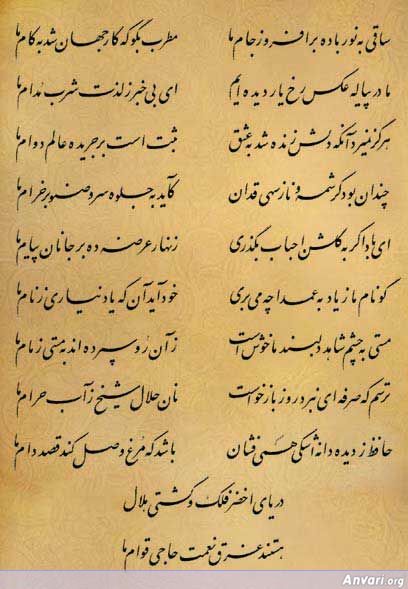 ساقی به نور باده برافروز جام ما مطرب بگو که کار جهان شد به کام ما
ما در پیاله عکس رخ یار دیده ایم ای بی خبر ز لذت شرب مدام ما
هرگز نمیرد آنکه دلش زنده شد به عشق ثبت است بر جریده عالم دوام ما
چندان بود کرشمه و ناز سهی قدان کآید به جلوه سرو صنوبر خرام ما
ای باد اگر به گلشن احباب بگذری زنهار عرضه ده بر جانان پیام ما
گو نام ما ز یاد به عمدا چه می بری خود آید آن که یاد نیاری ز نام ما
مستی به چشم شاهد دلبند ما خوش است زآن رو سپرده اند به مستی زمام ما
ترسم که صرفه ای نبرد روز بازخواست نان حلال شیخ ز آب حرام ما
حافظ ز دیده دانه اشکی همی فشان باشد که مرغ وصل کند قصد دام ما
دریای اخضر فلک و کشتی هلال
هستند غرق نعمت حاجی قوام ما
Anvari.org